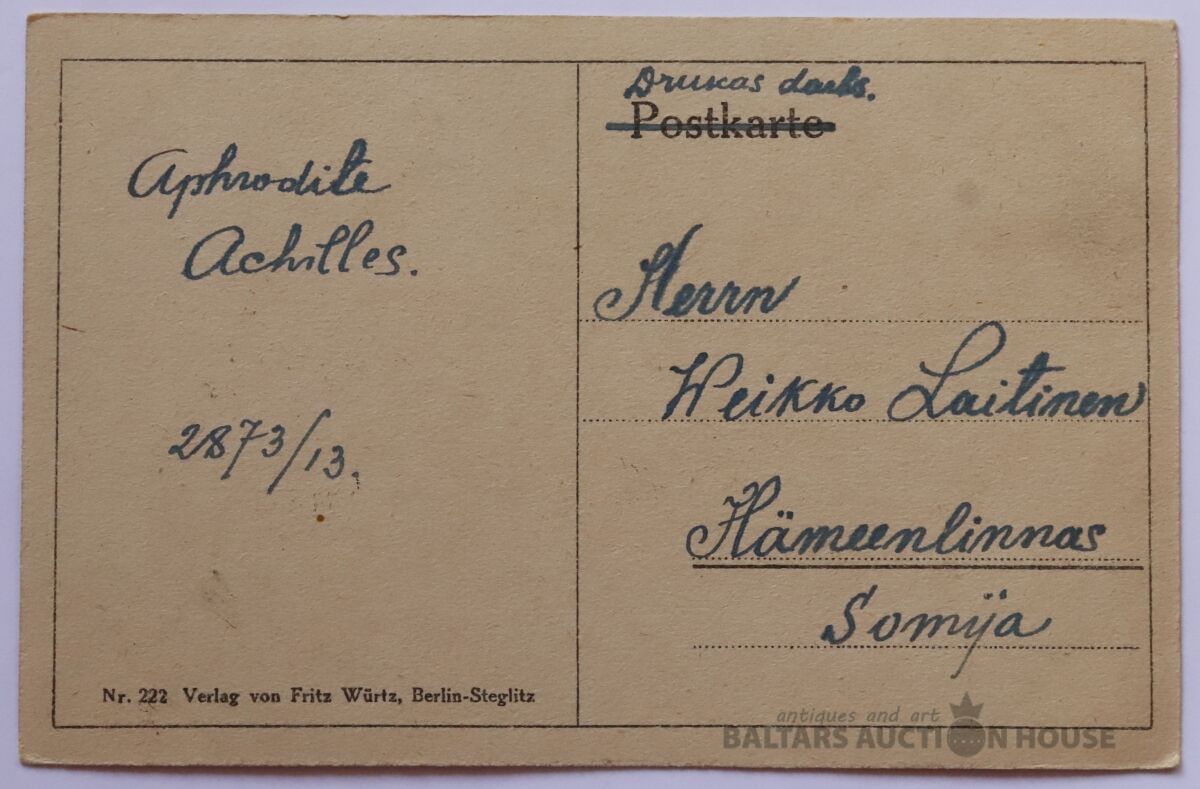 Aphrodite
Achilles.
2873/13.
Nr. 222 Verlag von Fritz Würtz, Berlin-Steglitz
Drukas darbs.
Postkarte
Herrn
Weikko Laitinen
Hämeenlinnas
Somija
antiques and art
BALTARS AUCTION HOUSE